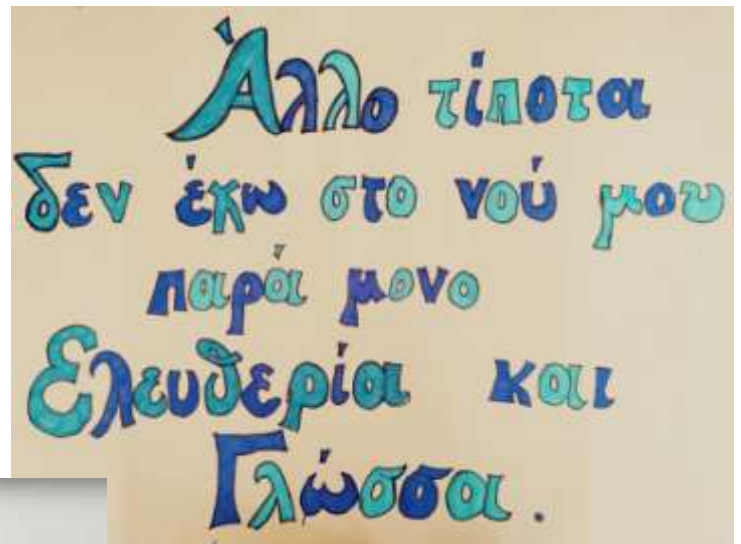 Άλλο τίποτα
δεν έχω στο νού μου
παρά μονο
Ελευθερία και
Γλώσσα.